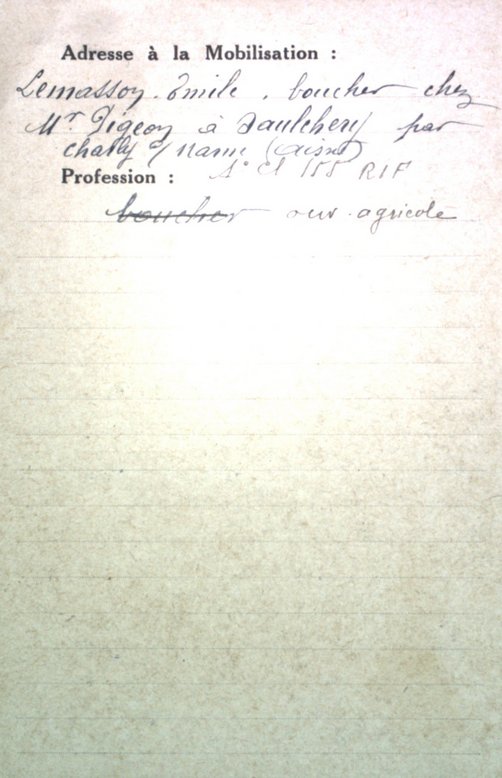 Adresse à la Mobilisation :
Lemasson Emile. boucher chez
Mr Pigeon à Saulchery par
charly s/ Marne (aisne)
Profession : 155 RIF
boucher ouv. agricole